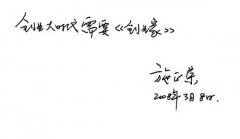 创业大时代需要《创业家》
施正荣
2008年3月8日